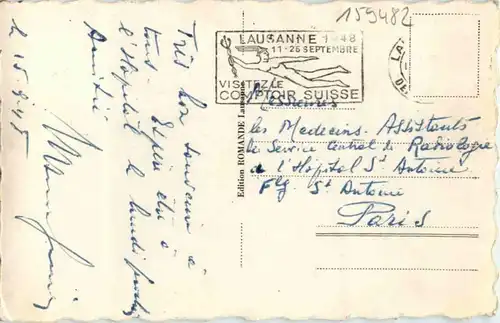 159482
LAUSANNE 1948
11-26 SEPTEMBRE
VISITEZ LE
COMPTOIR SUISSE
Très bon souvenir à
tous. Espère être à
l'Hôpital le lundi
Amitiés
le 15.9.48
Edition ROMANDE Lausanne
Messieurs
les Medecins. Assistants
du Service central de Radiologie
de l'Hôpital St Antoine
Fbg St Antoine
Paris